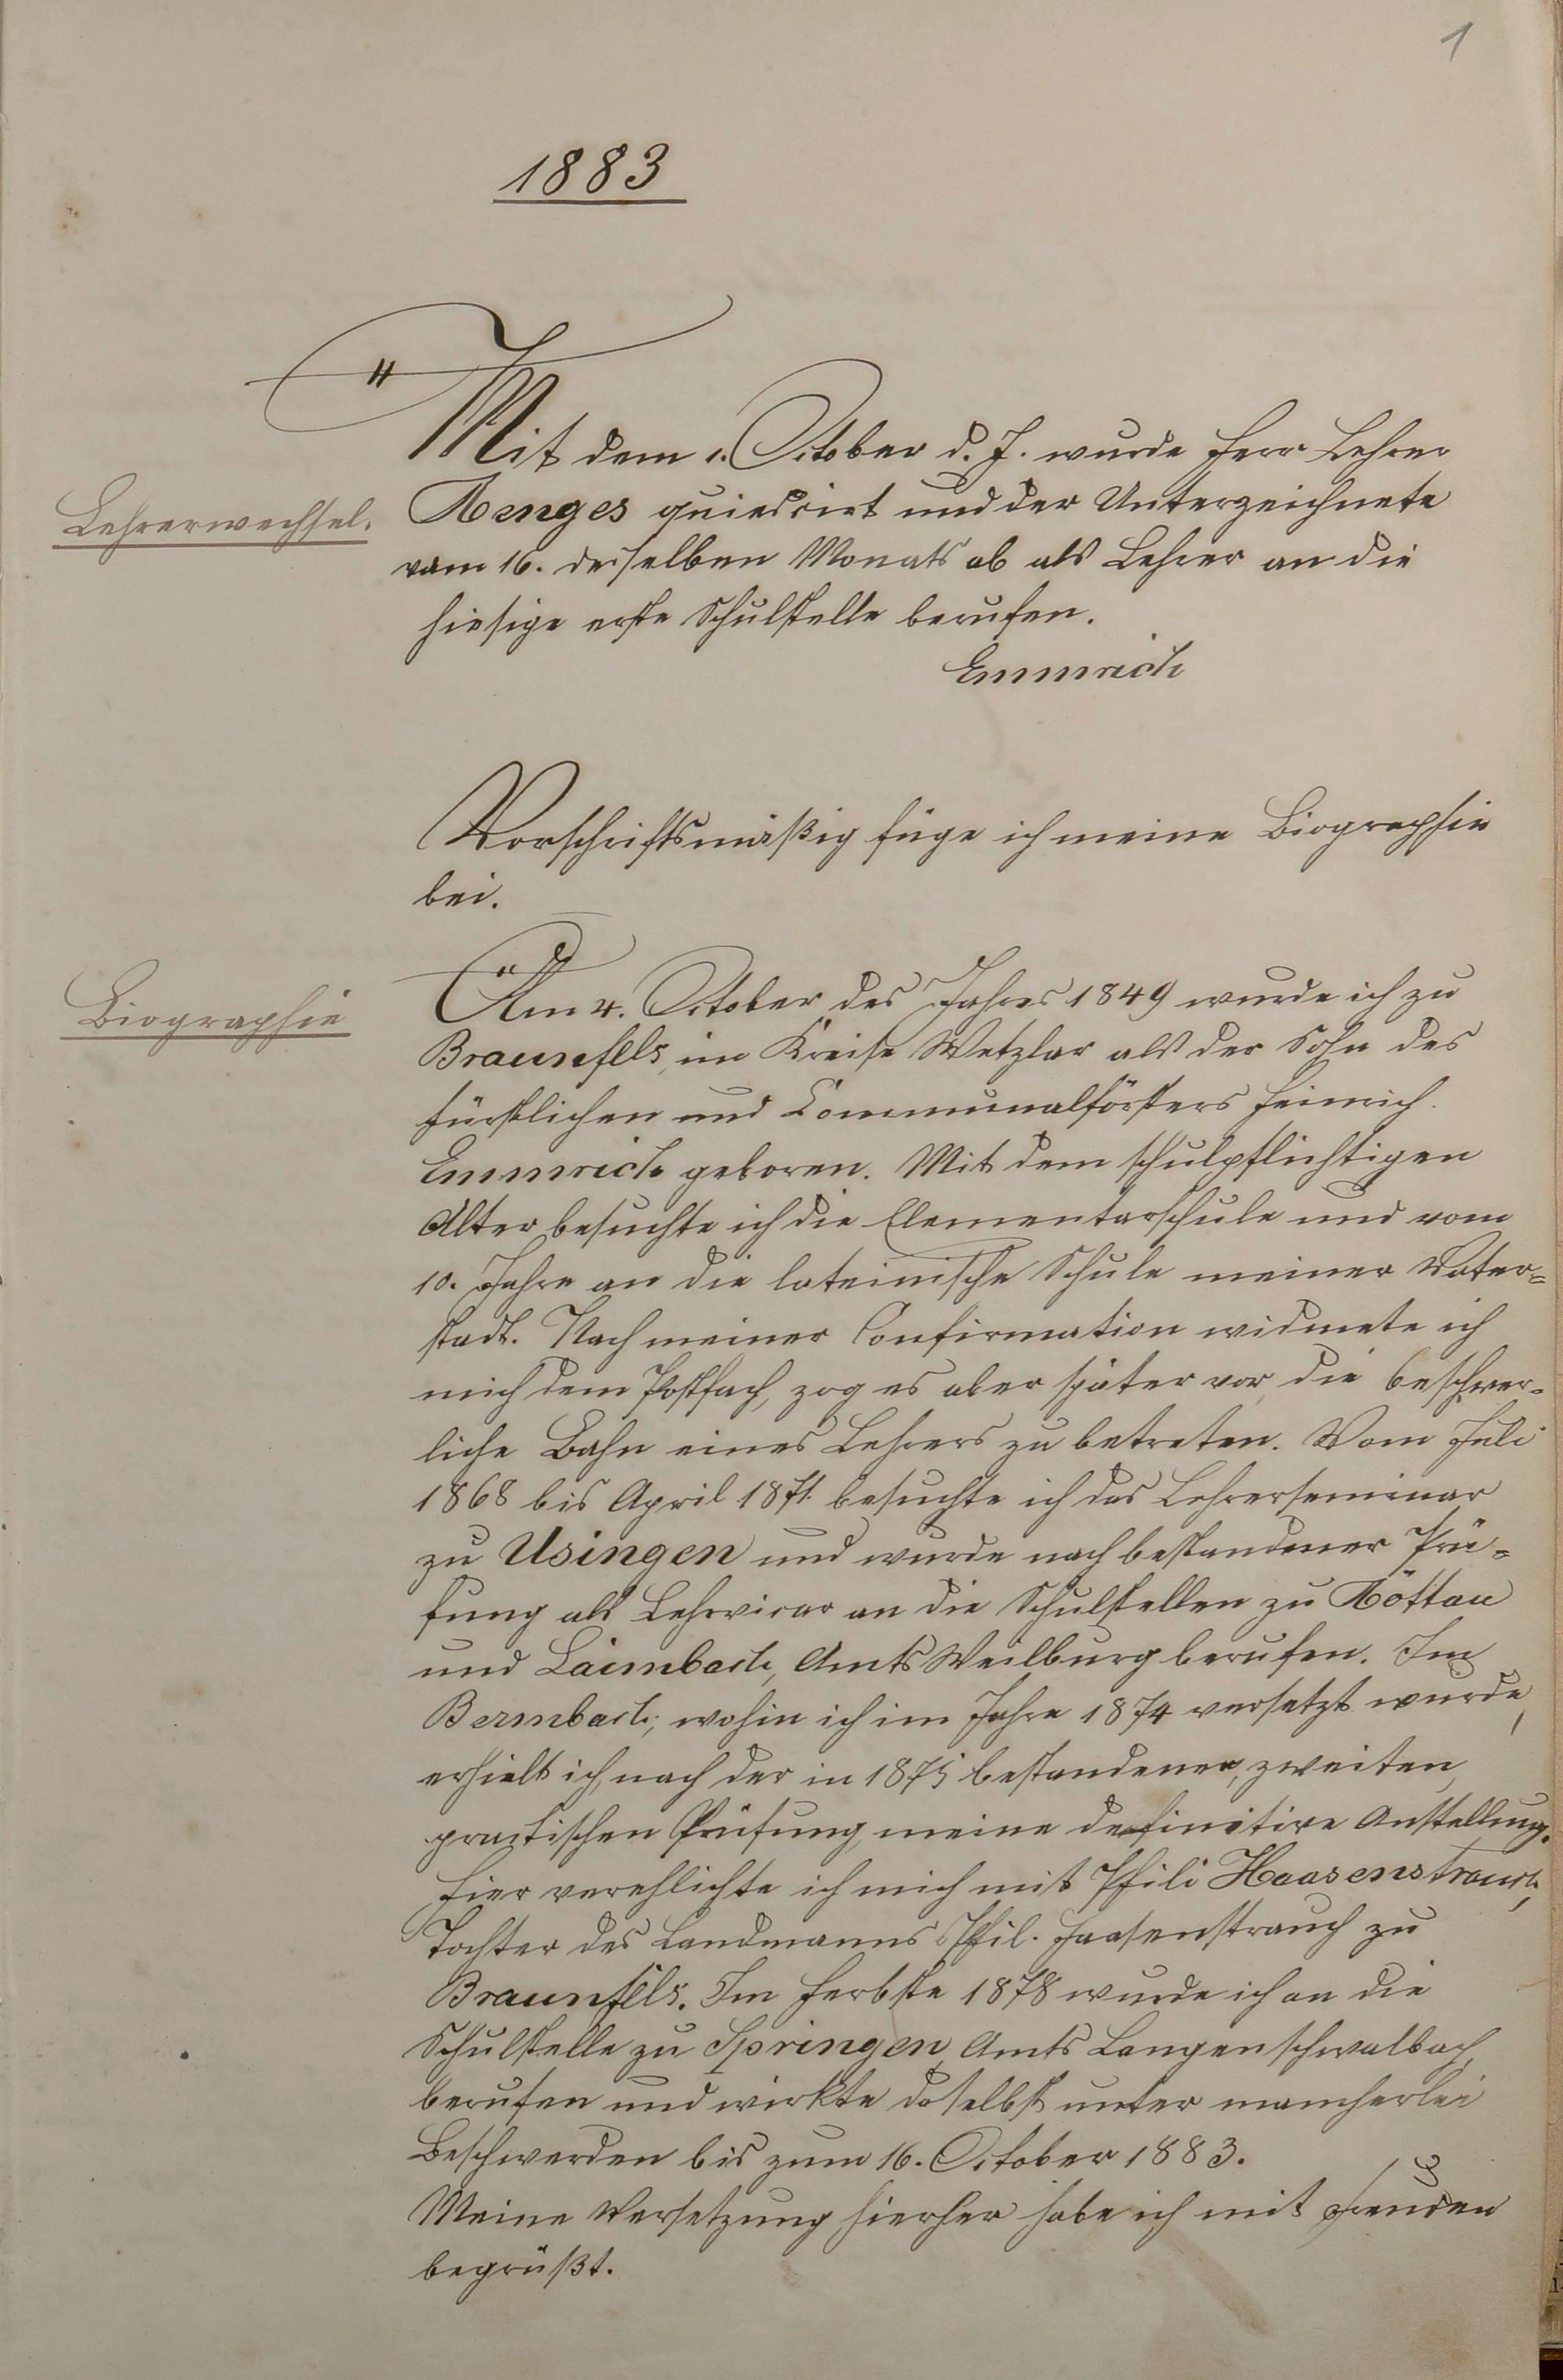 1
1883
Mit dem 1. October d. J. wurde Herr Lehrer
Lehrerwechsel.
Menges quiescirt und der Unterzeichnete
vom 16. desselben Monats ab als Lehrer an die
hiesige erste Schulstelle berufen.
Emmrich
Vorschriftsmäßig füge ich meine Biographie
bei.
Biographie
Am 4. October des Jahres 1849 wurde ich zu
Braunfels, im Kreise Wetzlar als der Sohn des
fürstlichen und Communalförsters Heinrich
Emmrich geboren. Mit dem schulpflichtigen
Alter besuchte ich die Elementarschule und vom
10. Jahre an die lateinische Schule meiner Vater=
stadt. Nach meiner Confirmation widmete ich
mich dem Postfach, zog es aber später vor, die beschwer=
liche Bahn eines Lehrers zu betreten. Vom Juli
1868 bis April 1871 besuchte ich das Lehrerseminar
zu Usingen und wurde nach bestandener Prü=
fung als Lehrvicar an die Schulstellen zu
und Laimbach, Amts Weilburg berufen. Im
Bermbach, wohin ich im Jahre 1874 versetzt wurde,
erhielt ich, nach der in 1875 bestandenen, zweiten,
practischen Prüfung, meine definitive Anstellung.
Hier verehlichte ich mich mit Phili Haasenstrauch,
Tochter des Landmanns Phil. Haasenstrauch zu
Braunfels. Im Herbste 1878 wurde ich an die
Schulstelle zu Springen, Amts Langenschwalbach,
berufen und wirkte daselbst unter mancherlei
Beschwerden bis zum 16. October 1883.
Meine Versetzung hierher habe ich mit Freuden
begrüßt.